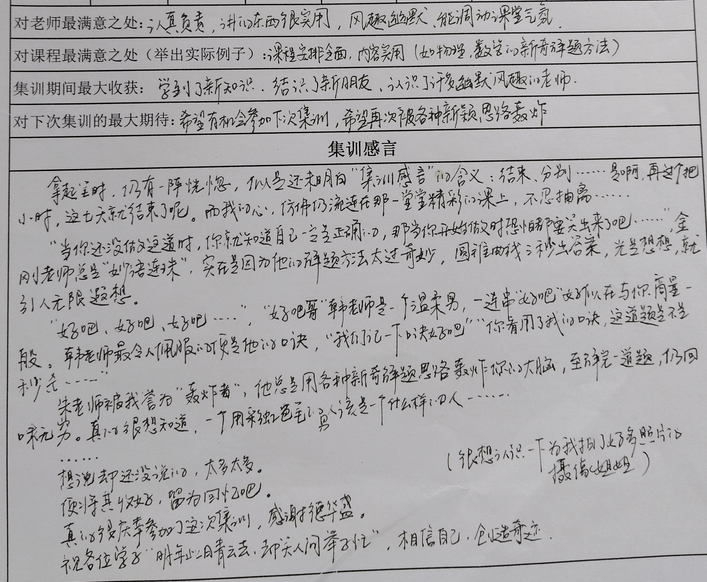 对老师最满意之处:认真负责,讲的东西很实用,风趣幽默,能调动课堂气氛.
对课程最满意之处(举出实际例子):课程安排全面,内容实用(如物理,数学的新奇解题方法)
集训期间最大收获:学到了新知识.结识了新朋友,认识了许多幽默风趣的老师.
对下次集训的最大期待:希望有机会参加下次集训,希望再次被各种新颖思路轰炸
集训感言
拿起笔时,仍有一阵恍惚,似是还未明白"集训感言"的含义:结束、分别……是啊,再过个把
小时,这七天就结束了呢。而我的心,仿佛仍流连在那一堂堂精彩的课上,不忍抽离……
"当你还没做这道时,你就知道自己一定是正确的,那当你开始做时恐怕都要笑出来了吧……",金
刚老师总是"妙语连珠",实在是因为他的解题方法太过奇妙,圆锥曲线三秒出答案,光是想想,就
引人无限遐想。
"好吧、好吧、好吧……","好吧哥"韩老师是一个温柔男,一连串"好吧"好似在与你商量一
般。韩老师最令人佩服的更是他的口诀,"我们记一下口诀好吧""你看用了我的口诀,这道题是不是
秒杀……"
朱老师被我誉为"轰炸者",他总是用各种新奇解题思路轰炸你的大脑,至解完一道题,仍回
味无穷。真的很想知道,一个用彩虹色毛的人该是一个什么样的人……
……
想说却还没说的,太多太多。
便将其收好,留为回忆吧。
(很想认识一下为我拍了好多照片的
摄像小姐姐)
真的很庆幸参加了这次集训,感谢德华盛。
祝各位学子"明年此日青云去,却笑人间举子忙",相信自己,创造奇迹.